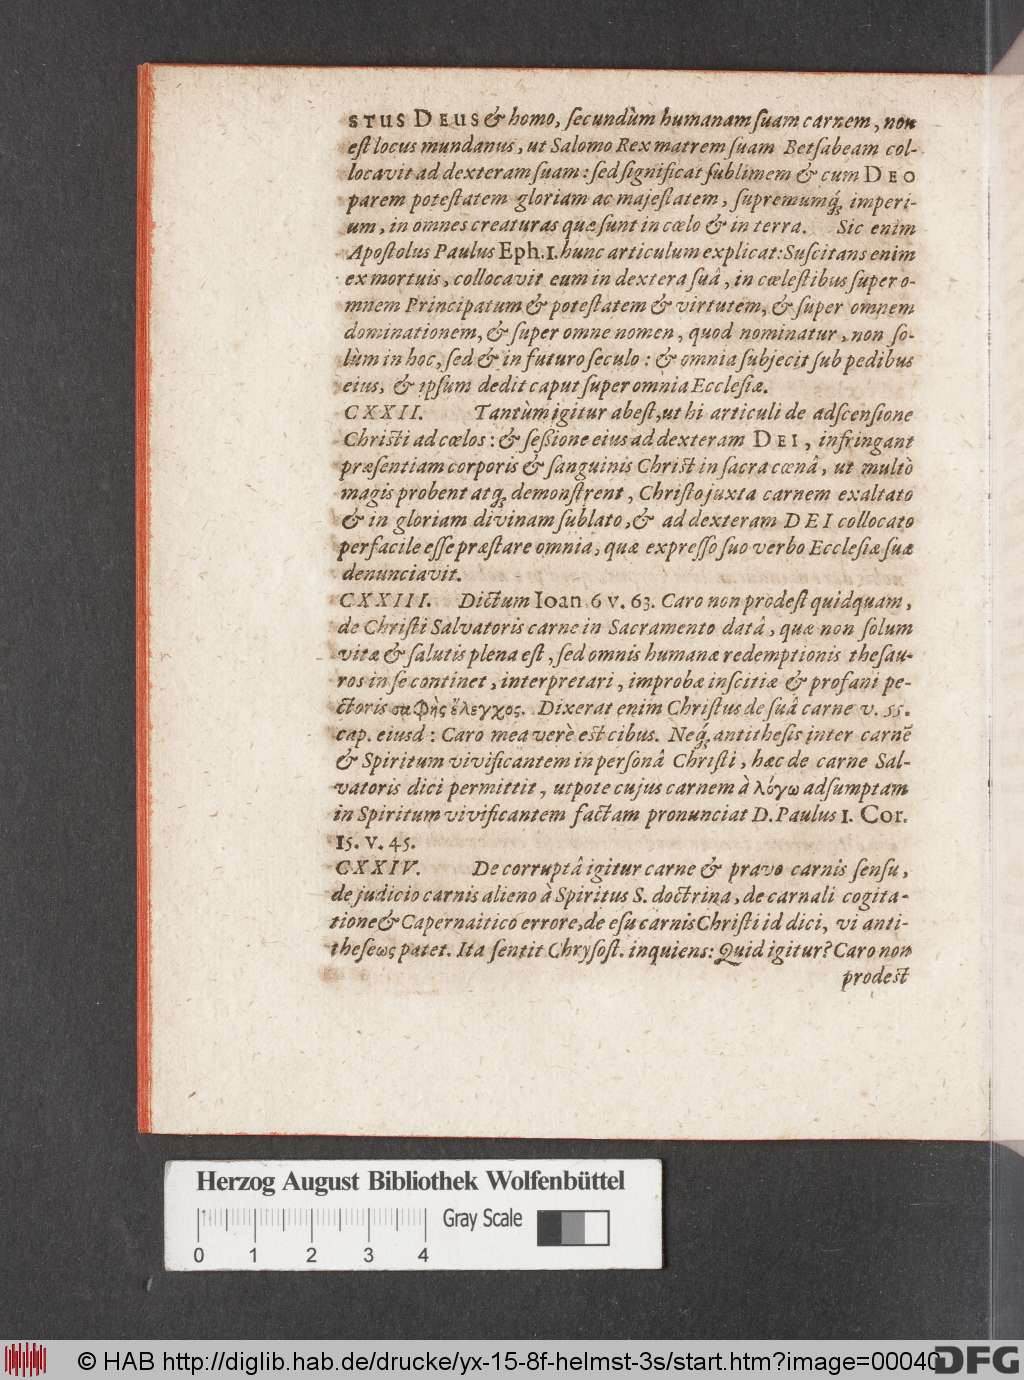 STUS DEUS & homo, ſecundùm humanam ſuam carnem, non
eſt locus mundanus, ut Salomo Rex matrem ſuam Betſabeam col-
locavit ad dexteram ſuam: ſed ſignificat ſublimem & cum DEO
parem poteſtatem gloriam ac majeſtatem, ſupremumq́; imperi-
um, in omnes creaturas quæ ſunt in cœlo & in terra. Sic enim
Apoſtolus Paulus Eph. 1. hunc articulum explicat: Suſcitans enim
ex mortuis, collocavit eum in dextera ſuâ, in cœleſtibus ſuper o-
mnem Principatum & poteſtatem & virtutem, & ſuper omnem
dominationem, & ſuper omne nomen, quod nominatur, non ſo-
lùm in hoc, ſed & in futuro ſeculo: & omnia ſubjecit ſub pedibus
eius, & ipſum dedit caput ſuper omnia Eccleſiæ.
CXXII. Tantùm igitur abeſt, ut hi articuli de adſcenſione
Chriſti ad cœlos: & ſeßione eius ad dexteram DEI, infringant
præſentiam corporis & ſanguinis Chriſt in ſacra cœnâ, ut multò
magis probent atq; demonſtrent, Chriſto juxta carnem exaltato
& in gloriam divinam ſublato, & ad dexteram DEI collocato
perfacile eſſe præſtare omnia, quæ expreſſo ſuo verbo Eccleſiæ ſuæ
denunciavit.
CXXIII. Dictum Ioan 6 v. 63. Caro non prodeſt quidquam,
de Chriſti Salvatoris carne in Sacramento datâ, quæ non ſolum
vitæ & ſalutis plena eſt, ſed omnis humanæ redemptionis theſau-
ros in ſe continet, interpretari, improbæ inſcitiæ & profani pe-
ctoris σαφὴς ἔλεγχος. Dixerat enim Chriſtus de ſuâ carne v. 55.
cap. eiusd: Caro mea verè eſt cibus. Neq́; antitheſis inter carnẽ
& Spiritum vivificantem in perſonâ Chriſti, hæc de carne Sal-
vatoris dici permittit, utpote cujus carnem à λόγῳ adſumptam
in Spiritum vivificantem factam pronunciat D. Paulus 1. Cor.
15. v. 45.
CXXIV. De corruptâ igitur carne & pravo carnis ſenſu,
de judicio carnis alieno à Spiritus S. doctrina, de carnali cogita-
tione & Capernaitico errore, de eſu carnis Chriſti id dici, vi anti-
theſεως patet. Ita ſentit Chryſoſt. inquiens: Quid igitur? Caro non
prodeſt
Herzog August Bibliothek Wolfenbüttel
0 1 2 3 4 Gray Scale
© HAB http://diglib.hab.de/drucke/yx-15-8f-helmst-3s/start.htm?image=00040
DFG